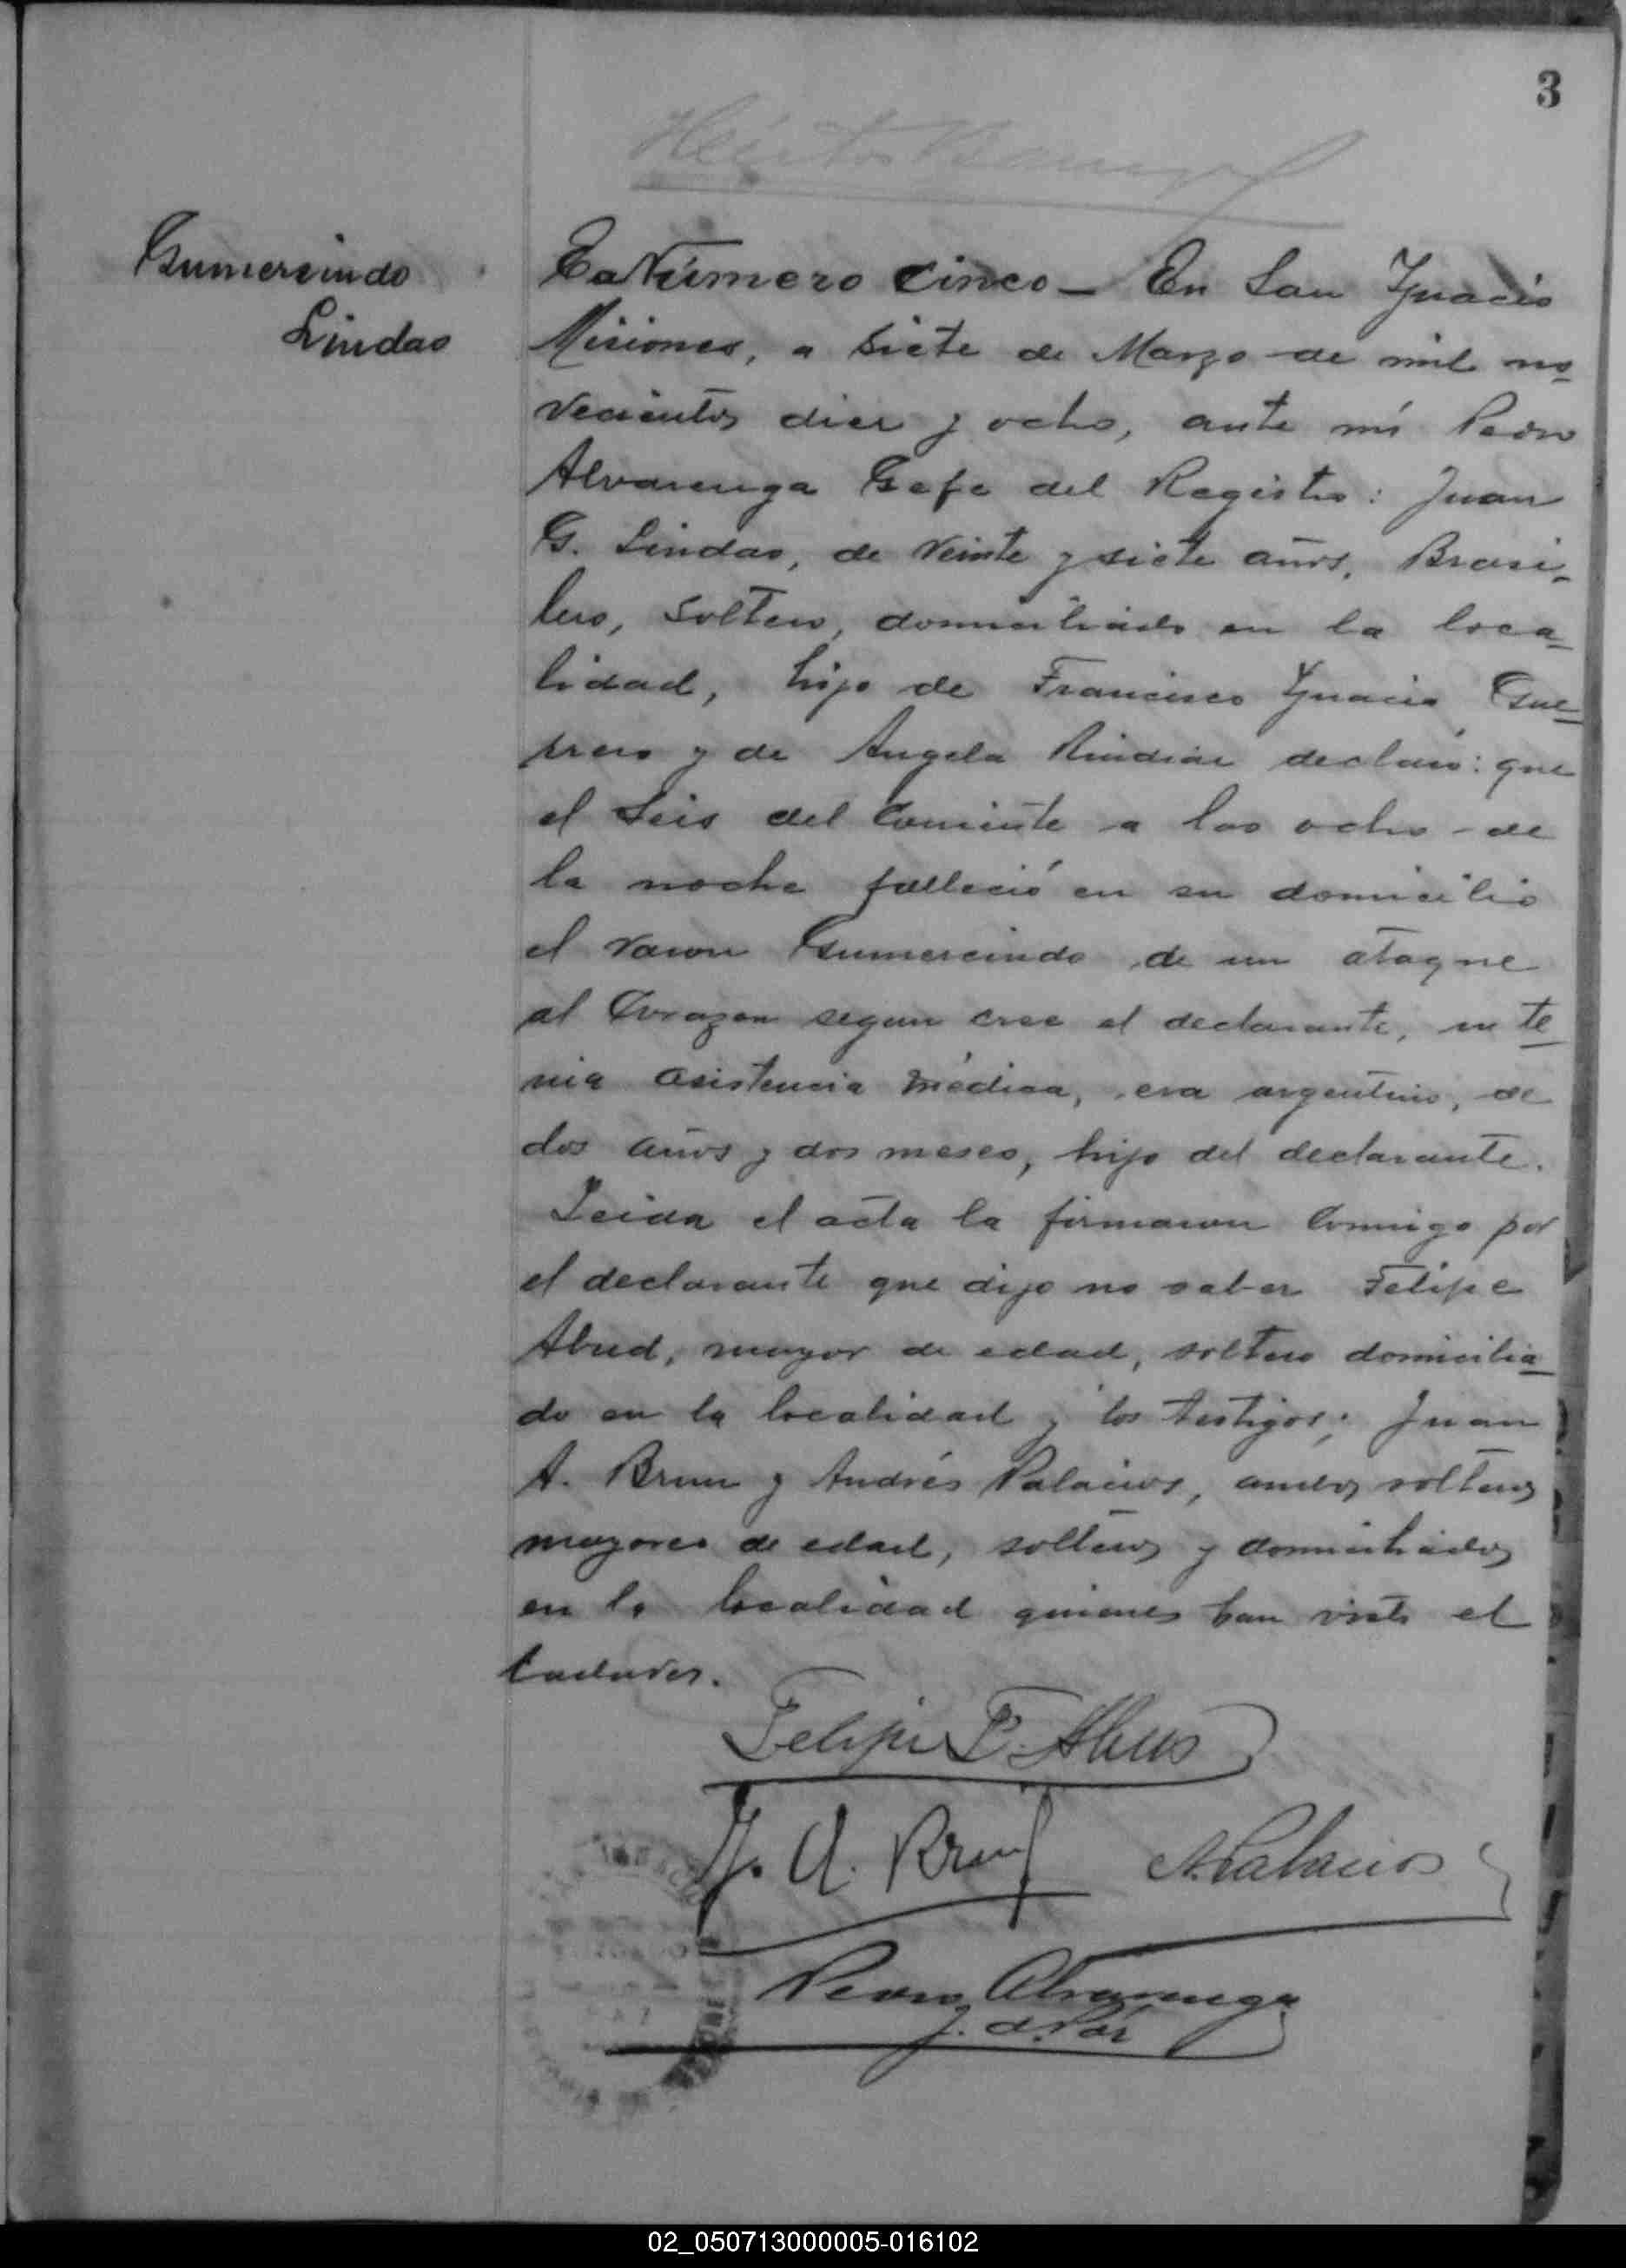 3
Gumersindo
Lindao
Número Cinco _ En San Ygnacio
Misiones, a Siete de Marzo de mil no-
vecientos diez y ocho, ante mí Pedro
Alvarenga Gefe del Registro: Juan
G. Lindao, de Veinte y siete años, Brasi-
lero, Soltero, domiciliado en la loca-
lidad, hijo de Francisco Ygnacio Gue-
rrero y de Angela declaró: que
el Seis del Corriente a las ocho de
la noche falleció en su domicilio
el Varon Gumercindo de un ataque
al Corazon segun cree el declarante, no te-
nia asistencia médica, era argentino, de
dos años y dos meses, hijo del declarante.
Leida el acta la firmaron Conmigo por
el declarante que dijo no saber Felipe
Abud, mayor de edad, soltero domicilia-
do en la localidad y los testigos: Juan
A. Brun y Andrés Palacios, ambos solteros
mayores de edad, solteros y domiciliados
en la localidad quienes han visto el
Cadaver.
Felipe
J. A. Brun A. Palacios
Pedro Alvarenga
J. d. Paz
02_050713000005-016102